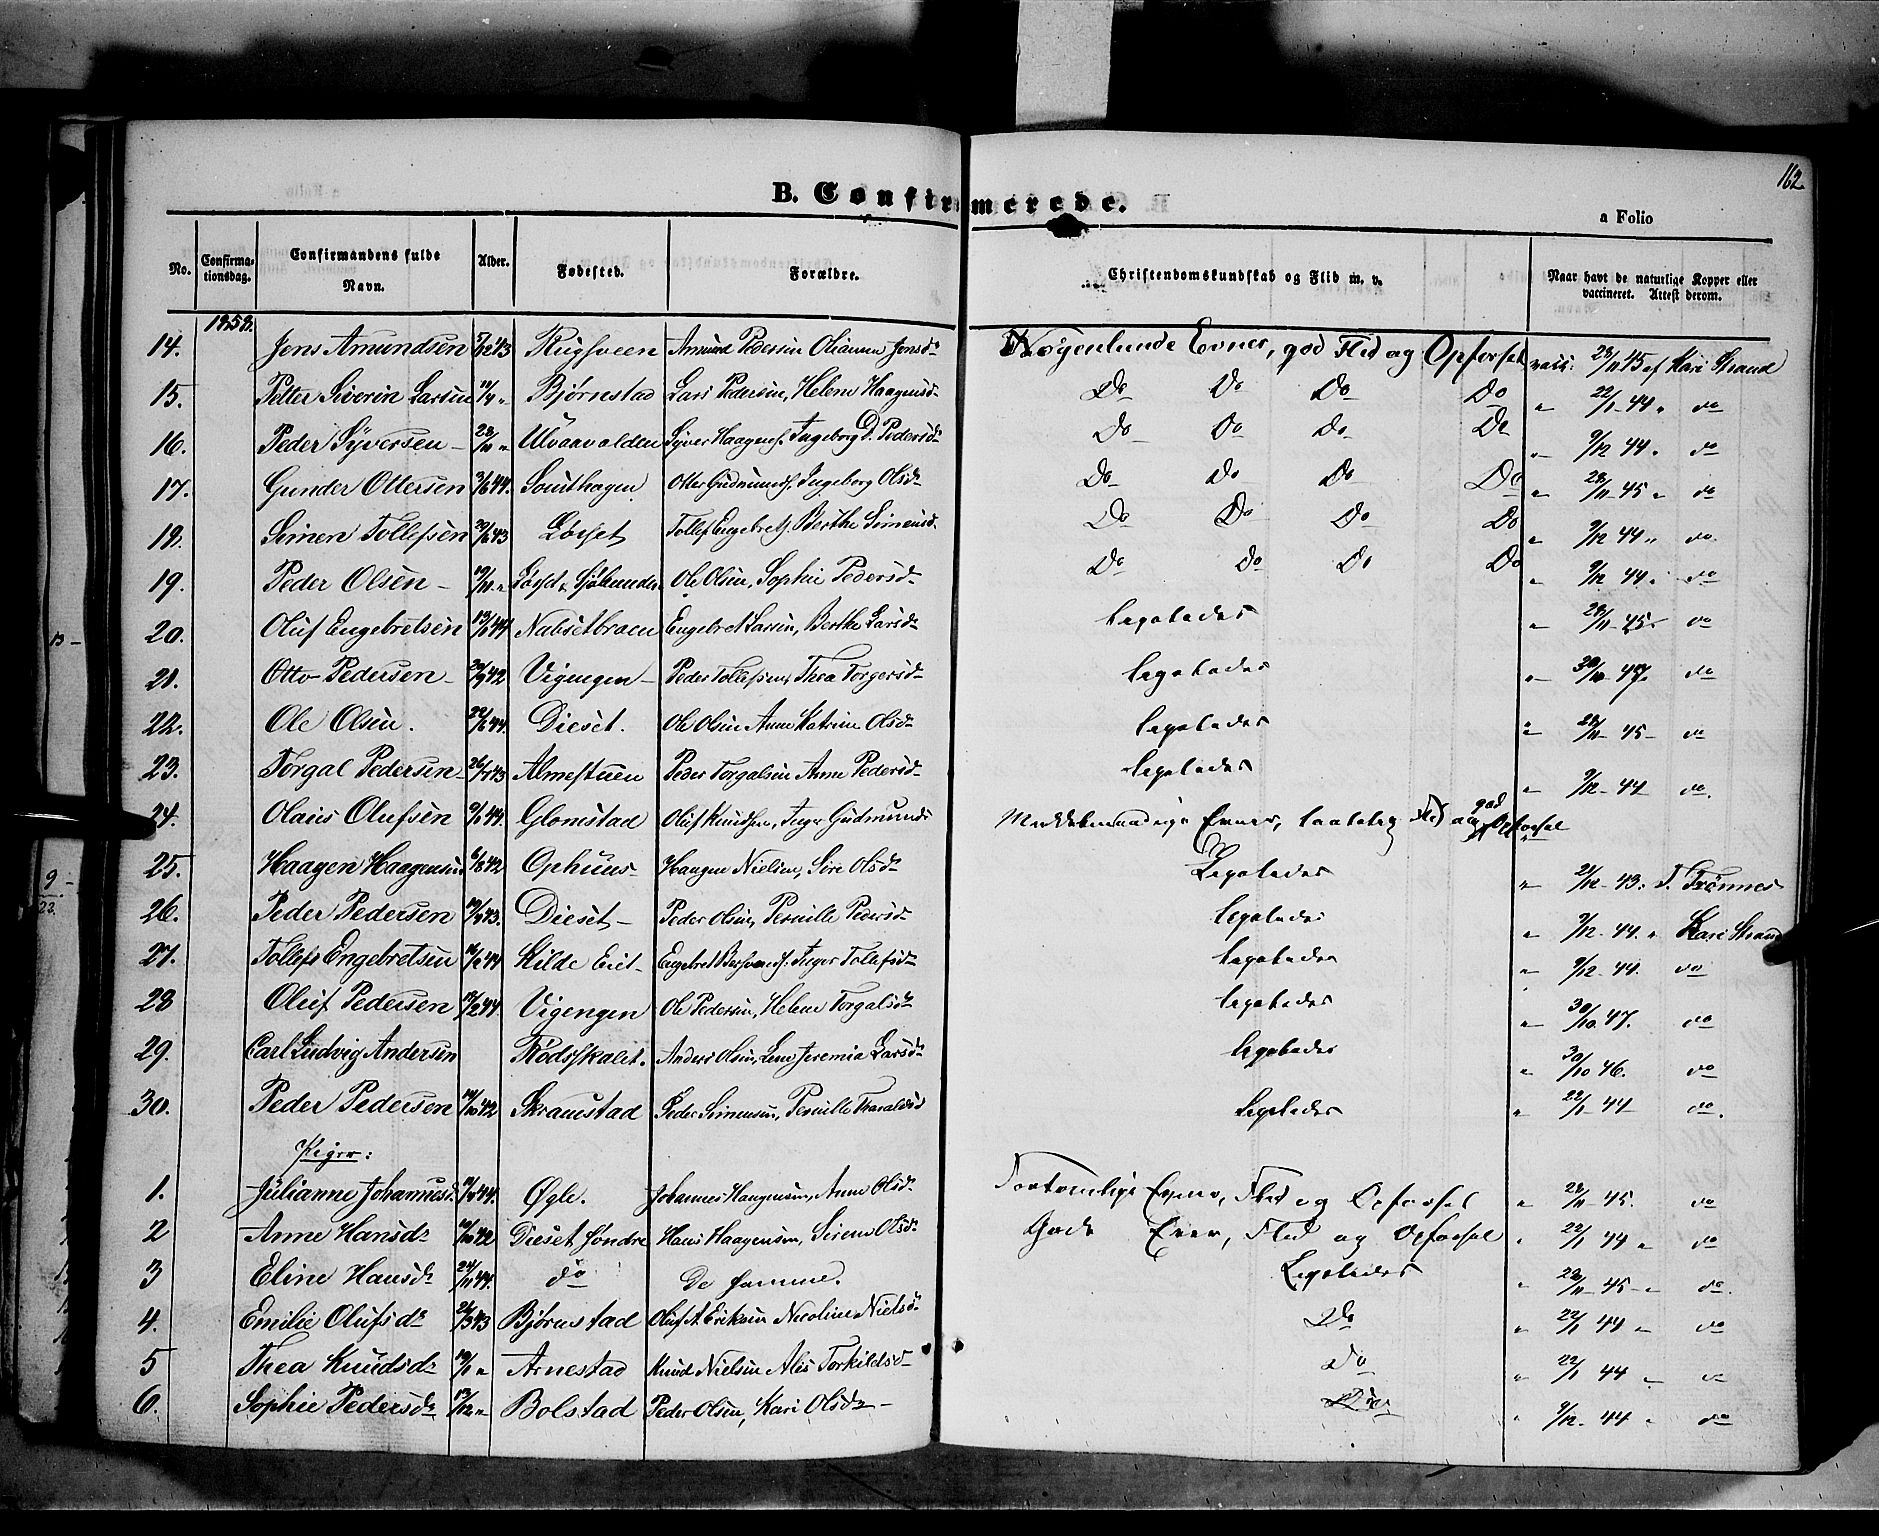 162.
B. Confirmerede.
a Folio
No. Confirmationsdag. Confirmandens fulde Navn. Alder. Fødested. Forældre. Christendomskundskab og Flid m. v. Naar havt de naturlige Kopper eller vaccineret. Attest derom.
1858.
14. Jens Amundsen 43 Rugsveen Amund Pedersen Olianne Jensdr Nogenlunde Evner, god Flid og Opførsel vacc: 28/11 45 af Kari Strand
15. Petter Siverin Larsen Bjørnstad Lars Pedersen, Helene Haagensdr Do Do Do Do " 22/1 44 " do
16. Peder Syversen 28/11 " Ulvaavolden Syver Haagens. Ingebrig D. Pedersdr Do Do Do Do " 9/12 44 " do
17. Gunder Ottersen 3/6 44. Sousthagen Otter Gudmunds. Ingeborg Olsdr Do Do Do Do " 28/11 45 " do
18. Simen Tollefsen 43 Løset Tollef Engebrets. Berthe Simensd. Do Do Do Do " 9/12 44 " do
19. Peder Olsen 19/11 " Ole Olsen, Sophie Pedersdr Do Do Do Do " 9/12 44 " do
20. Oluf Engebretsen 44 Nabsetbraen Engebret Larsen, Berthe Larsdr Ligeledes " 28/11 45 do
21. Otto Pedersen 42 Vigengen Peder Tollefsen, Thea Torgersdr Ligeledes " 30/10 47 do
22. Ole Olsen. 44. Dieset. Ole Olsen Anne Katrine Olsdr Ligeledes " 28/11 45 do
23. Torgal Pedersen 43 Almestuen Peder Torgalsen Anne Pedersdr Ligeledes " 9/12 44 do.
24. Olaus Olufsen 44. Glomstad Oluf Knudsen, Inger Gudmunds Middelmaadige Evner, taalelig Flid og god Opførsel
25. Haagen Haagensen 6/8 42 Ophuus Haagen Nielsen, Sire Olsdr Ligeledes " 2/12 43: T. Trønnes
26. Peder Pedersen 43. Dieset Peder Olsen, Pernille Pedersdr Ligeledes " 9/12 44. " Kari Strand
27. Tollef Engebretsen 44 Kilde Eiet Engebret Inger Tollefsdr Ligeledes " 9/12 44. do
28 Oluf Pedersen 44 Vigengen Ole Pedersen, Helene Torgalsdr Ligeledes " 30/10 47. do
29. Carl Ludvig Andersen Rødsskalet. Anders Olsen, Lene Jeremia Larsdr Ligeledes " 30/10 46. do
30. Peder Pedersen 42 Skramstad Peder Simensen, Pernille Tharaldsd Ligeledes " 22/1 44 do.
Piger:
1. Julianne Johannesd. 44. Øgle. Johannes Haagensen, Anne Olsdr Fortrinlige Evner, Flid og Opførsel " 28/11 45. do
2 Anne Hansdr 42 Dieset søndre Hans Haagensen, Sirene Olsdr Gode Evner, Flid og Opførsel " 22/1 44 " do
3 Eline Hansdr 24/11 44. do De samme. Ligeledes " 28/11 45 " do.
4. Emilie Olufsdr 43 Bjørnstad Oluf A. Eriksen Nicoline Nielsdr Do " 22/1 44 " do
5 Thea Knudsdr Arnestad Knud Nielsen Alis Torkildsdr Do " 22/1 44 " do
6. Sophie Pedersdr 13/12 " Bolstad Peder Olsen, Kari Olsdr Do " 9/12 44 " do